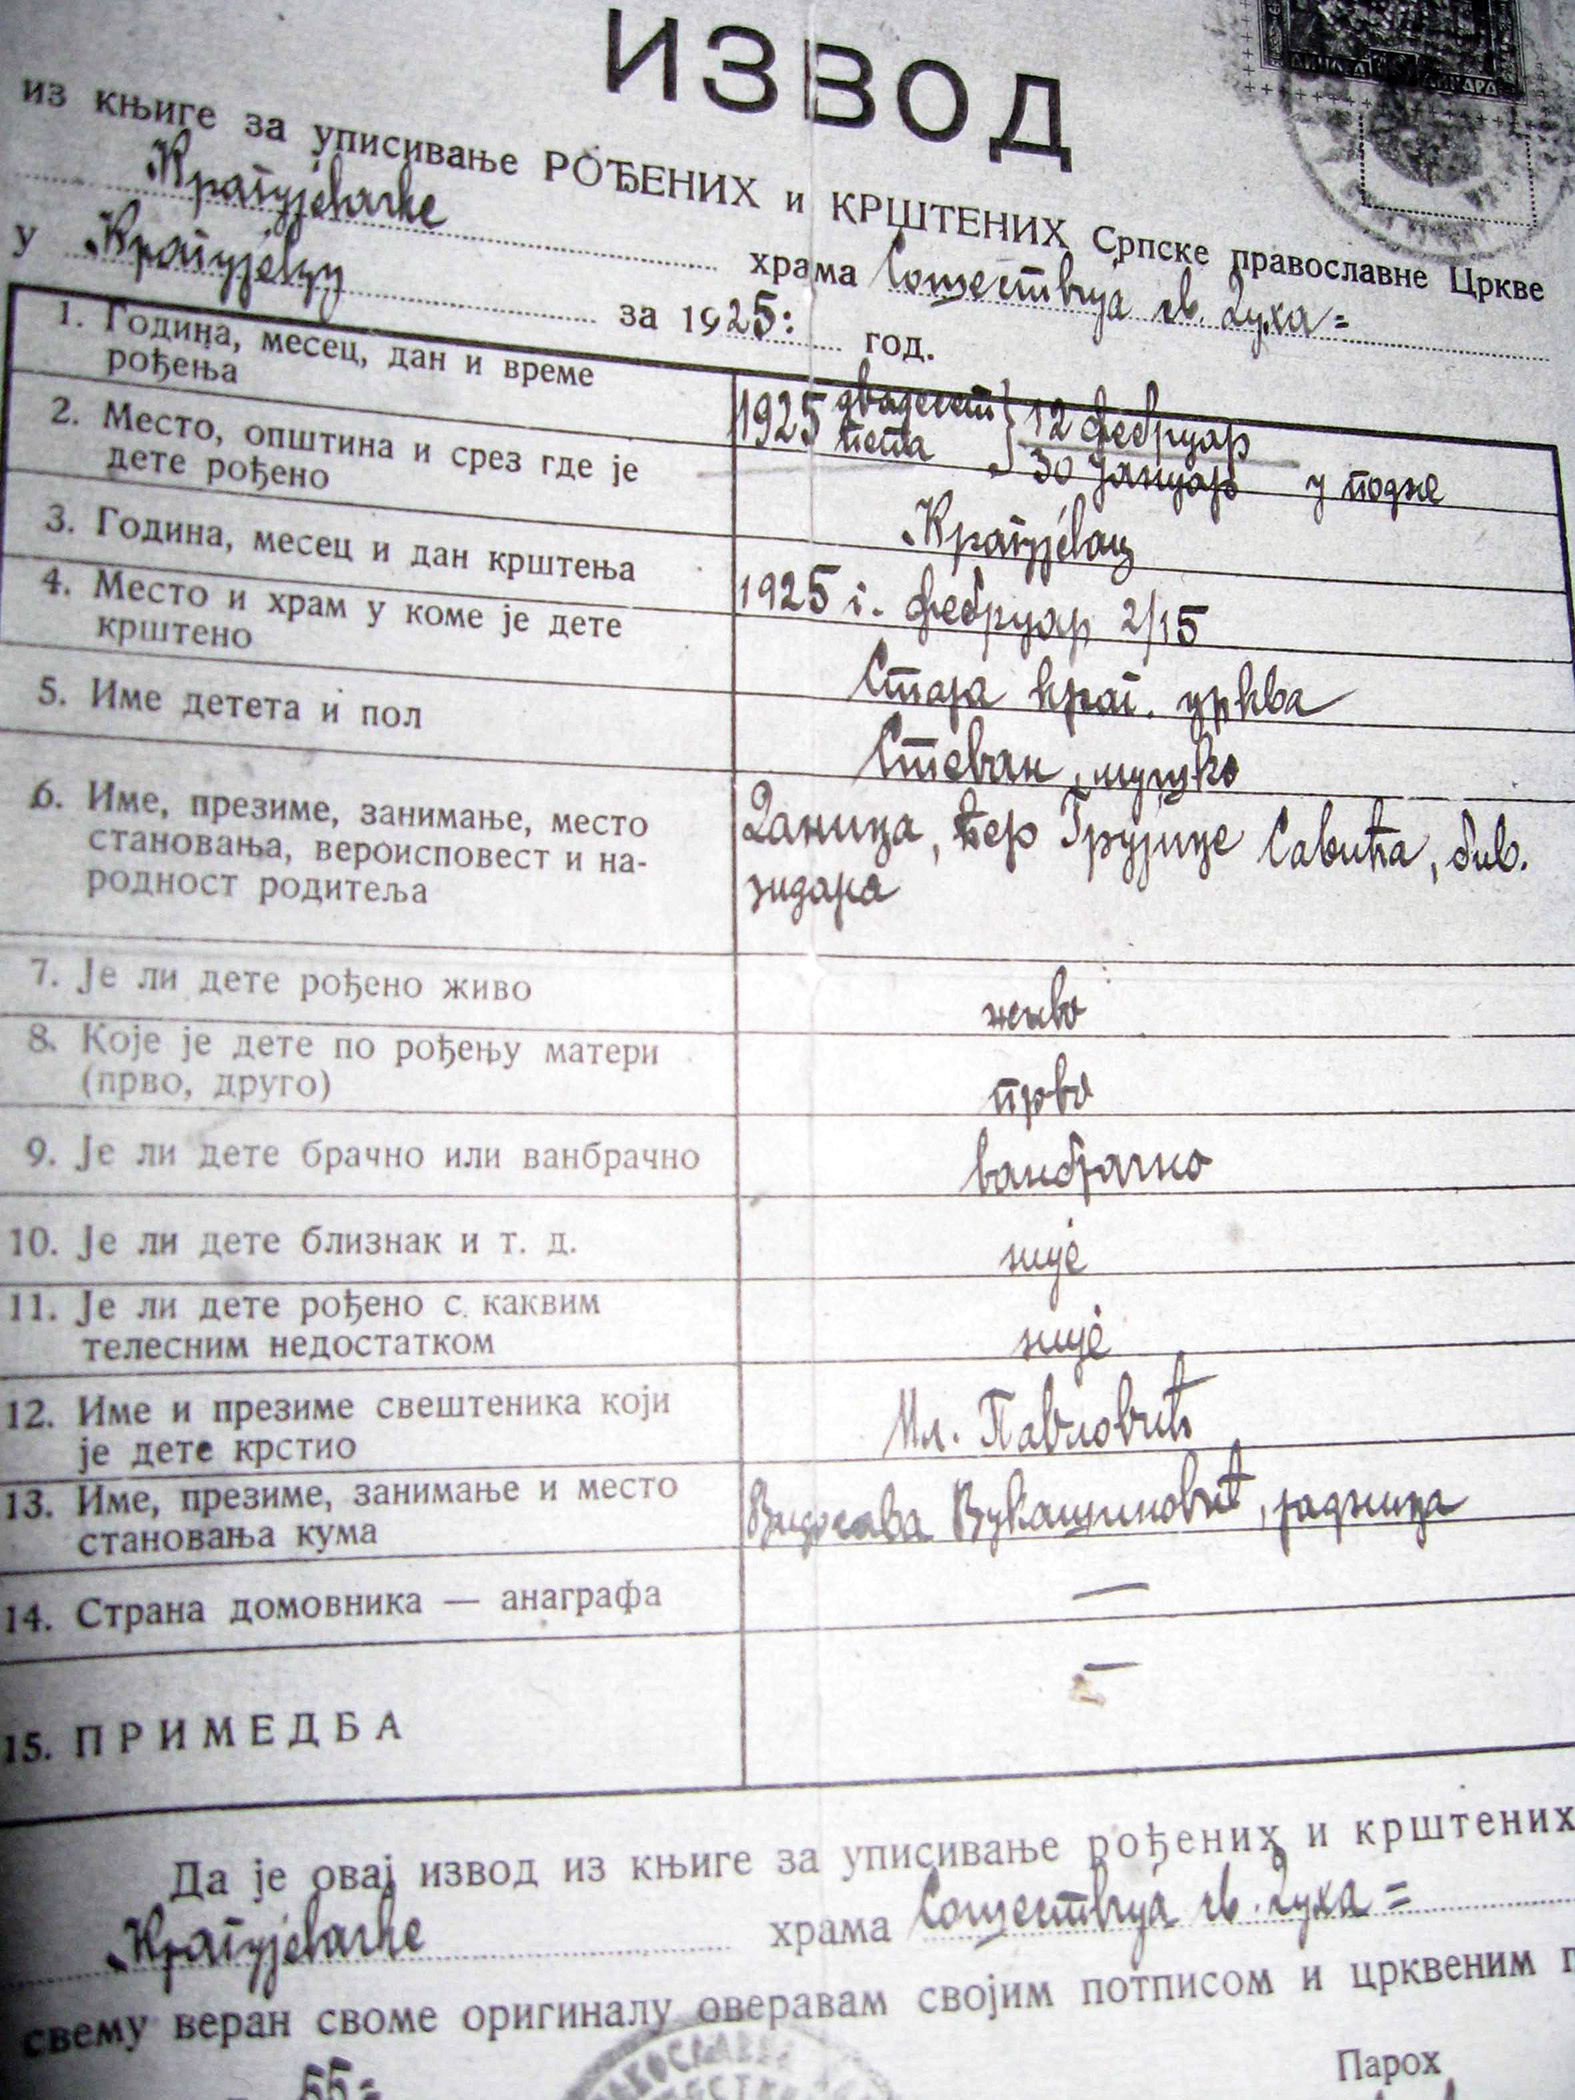 ИЗВОД
из књиге за уписивање РОЂЕНИХ и КРШТЕНИХ Српске православне Цркве
Крагујевачке храма Сошествија св. Духа =
у Крагујевцу за 1925: год.
1. Година, месец, дан и време
рођења
1925 двадесет пета } 12 фебруар
30 јануар у подне
2. Место, општина и срез где је
дете рођено
Крагујевац
3. Година, месец и дан крштења
1925 г. фебруар 2/15
4. Место и храм у коме је дете
крштено
Стара краг. црква
5. Име детета и пол
Стеван, мушко
6. Име, презиме, занимање, место
становања, вероисповест и на-
родност родитеља
Даница, кћер Грујице Савића, бив.
зидара
7. Је ли дете рођено живо
живо
8. Које је дете по рођењу матери
(прво, друго)
прво
9. Је ли дете брачно или ванбрачно
ванбрачно
10. Је ли дете близнак и т. д.
није
11. Је ли дете рођено с каквим
телесним недостатком
није
12. Име и презиме свештеника који
је дете крстио
Мл. Павловић
13. Име, презиме, занимање и место
становања кума
Видосава Вукашиновић, радница
14. Страна домовника — анаграфа
—
15. ПРИМЕДБА
—
Да је овај извод из књиге за уписивање рођених и крштених
Крагујевачке храма Сошествија св. Духа =
свему веран своме оригиналу оверавам својим потписом и црквеним
55 =
Парох